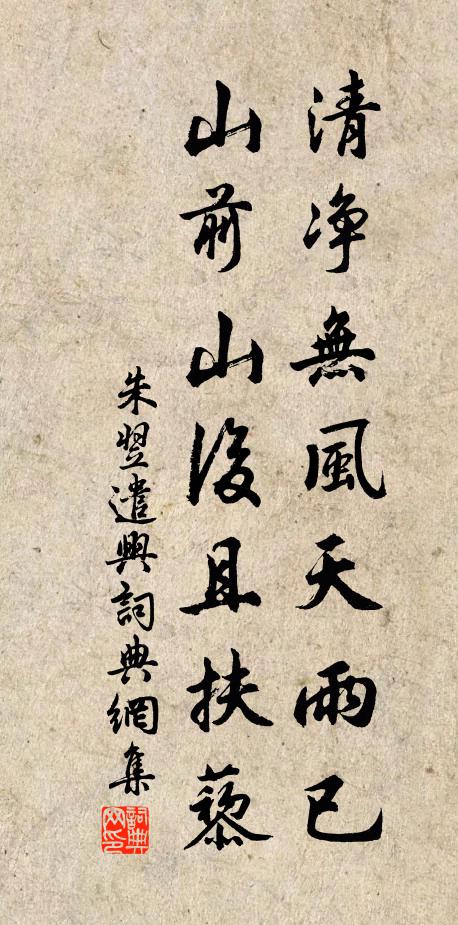 清淨無風天雨已
山前山後且扶藜
朱翌遣興詞典網集
詞典網印